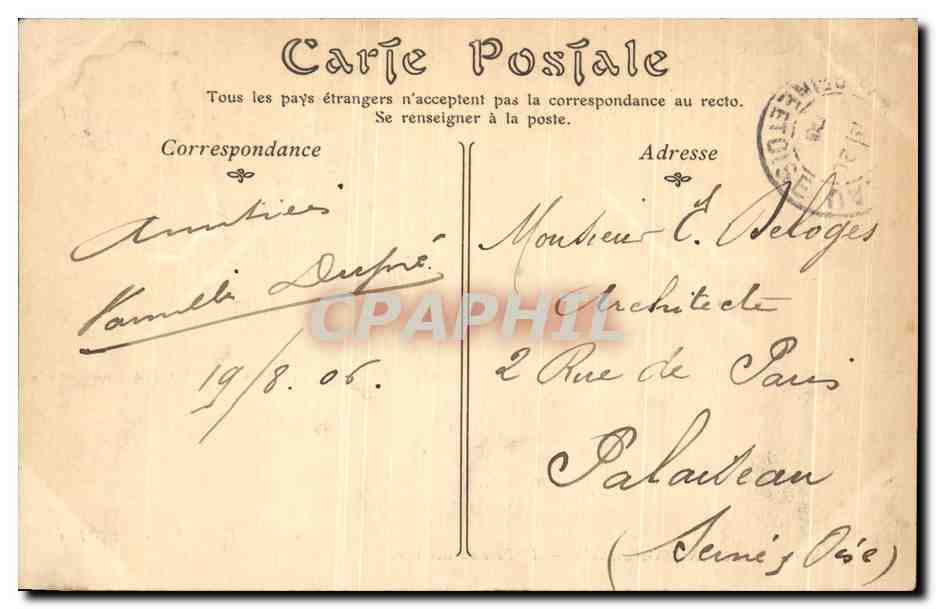 Carte Postale
Tous les pays étrangers n'acceptent pas la correspondance au recto.
Se renseigner à la poste.
Correspondance
Adresse
Amitiés
Famille Dupré
19/8.06.
Monsieur Deloges
Architecte
2 Rue de Paris
Palaiseau
(Seine & Oise)
ET OISE
CPAPHIL